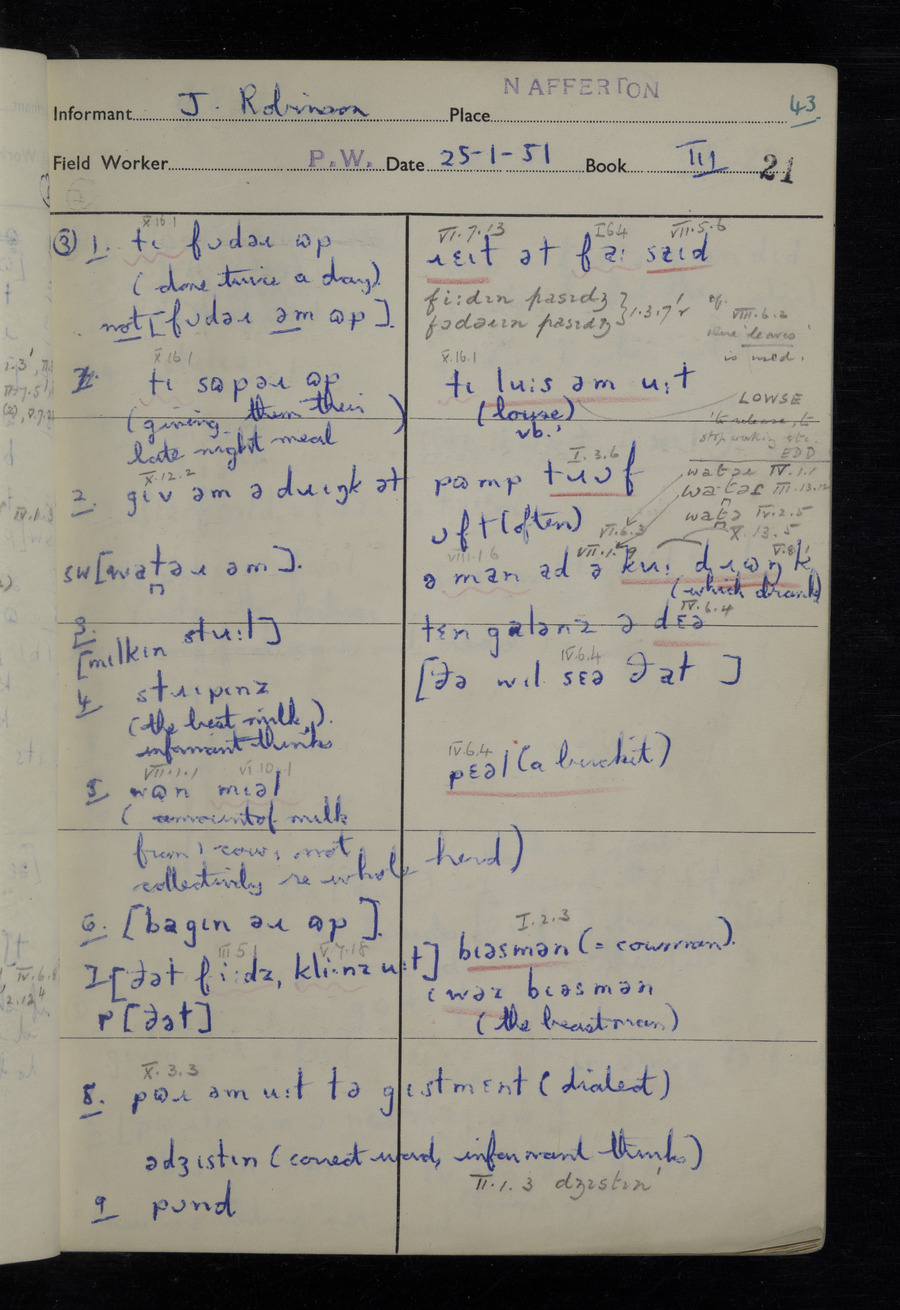 NAFFERTON
Informant J. Robinson Place 43
Field Worker P.W. Date 25-1-51 Book III 21
X.16.1
③ 1. tɪ fʊdəɹ ɷp
(done twice a day)
not [fʊdəɹ əm ɷp].
X.16.1
tɪ sɷpəɹ ɷp
(giving them their
late night meal)
X.12.2
2. gɪv əm ə dɹɪŋk ət
sw[watəɹ əm].
3.
[mɪlkɪn stu:l]
4. stɹɪpɪnz
(the best milk,
informant thinks).
VII.1.1 VI.10.1
5. wɷn mɪəl
(amount of milk
from 1 cow, not
collectively re whole herd)
6. [bagɪn əɹ ɷp].
III.5.1 V.7.18
7 [ðət fi:dz, kli:nz u:t]
p [ðət]
X.3.3
8. pɷɹ əm u:t tə gɪstmɛnt (dialect)
ədʒɪstɪn (correct word, informant thinks)
II.1.3 dʒɪstɪn'
9 pʊnd
VI.7.13 I.6.4 VII.5.6
ɹɛɪt ət fa: saɪd
fi:dɪn pasɪdʒ
fədəɹɪn pasɪdʒ } I.3.7'r
cf.
VIII.6.2
where 'leaves'
is used.
X.16.1
tɪ lu:s əm u:t
(louse)
vb.'
LOWSE
'to release, to
stop working etc.
EDD
I.3.6
pɷmp tɹʊf
ʊft (often)
watəɹ IV.1.1
watəɹ III.13.12
watə IV.2.5
X.13.5
VIII.1.6 VII.1.9 VI.6.3 V.8.1
ə man əd ə ku: dɹɷŋk
(which drank)
IV.6.4
tɛn galənz ə dɛə
IV.6.4
[ðə wɪl sɛə ðat]
IV.6.4
pɛəl (a bucket)
I.2.3
bɪəsmən (= cowman).
ɪ wəz bɪəsmən
(the beastman)